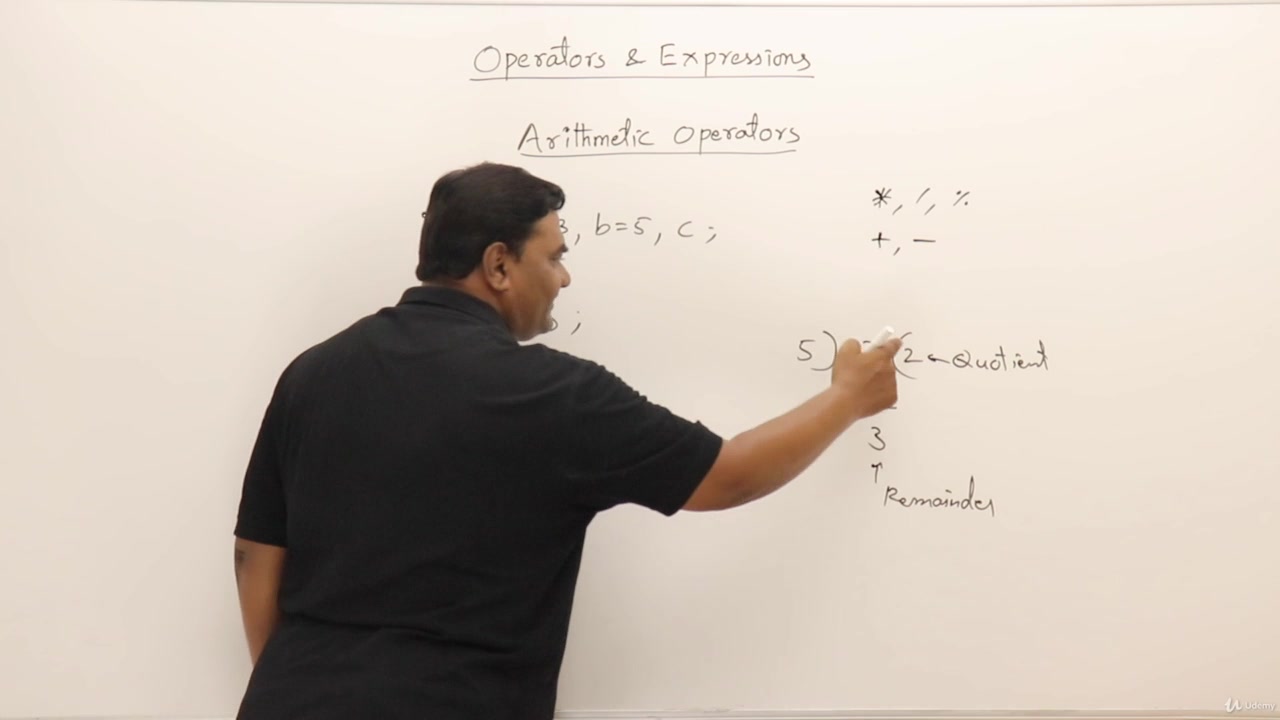 Operators & Expressions
Arithmetic Operators
*, /, %
3, b=5, c;
+, −
;
5) (2 ← Quotient
3
↑
Remainder
Udemy